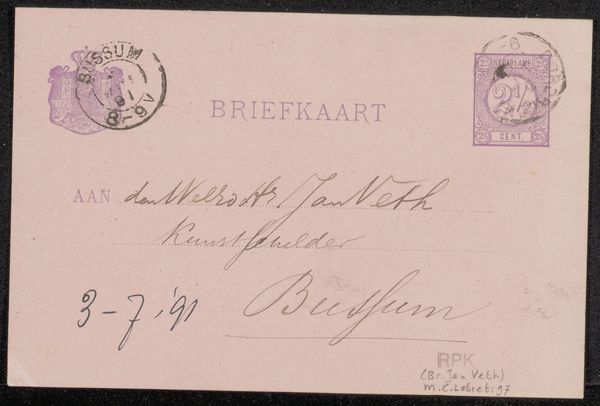 BUSSUM
91
8-9V
BRIEFKAART
NEDERLAND
2½
CENT.
AAN den Jan Veth
Kunstschilder
Bussum
3-7.'91
RPK
(Br. Jan Veth)
M.C. Lebret: 97